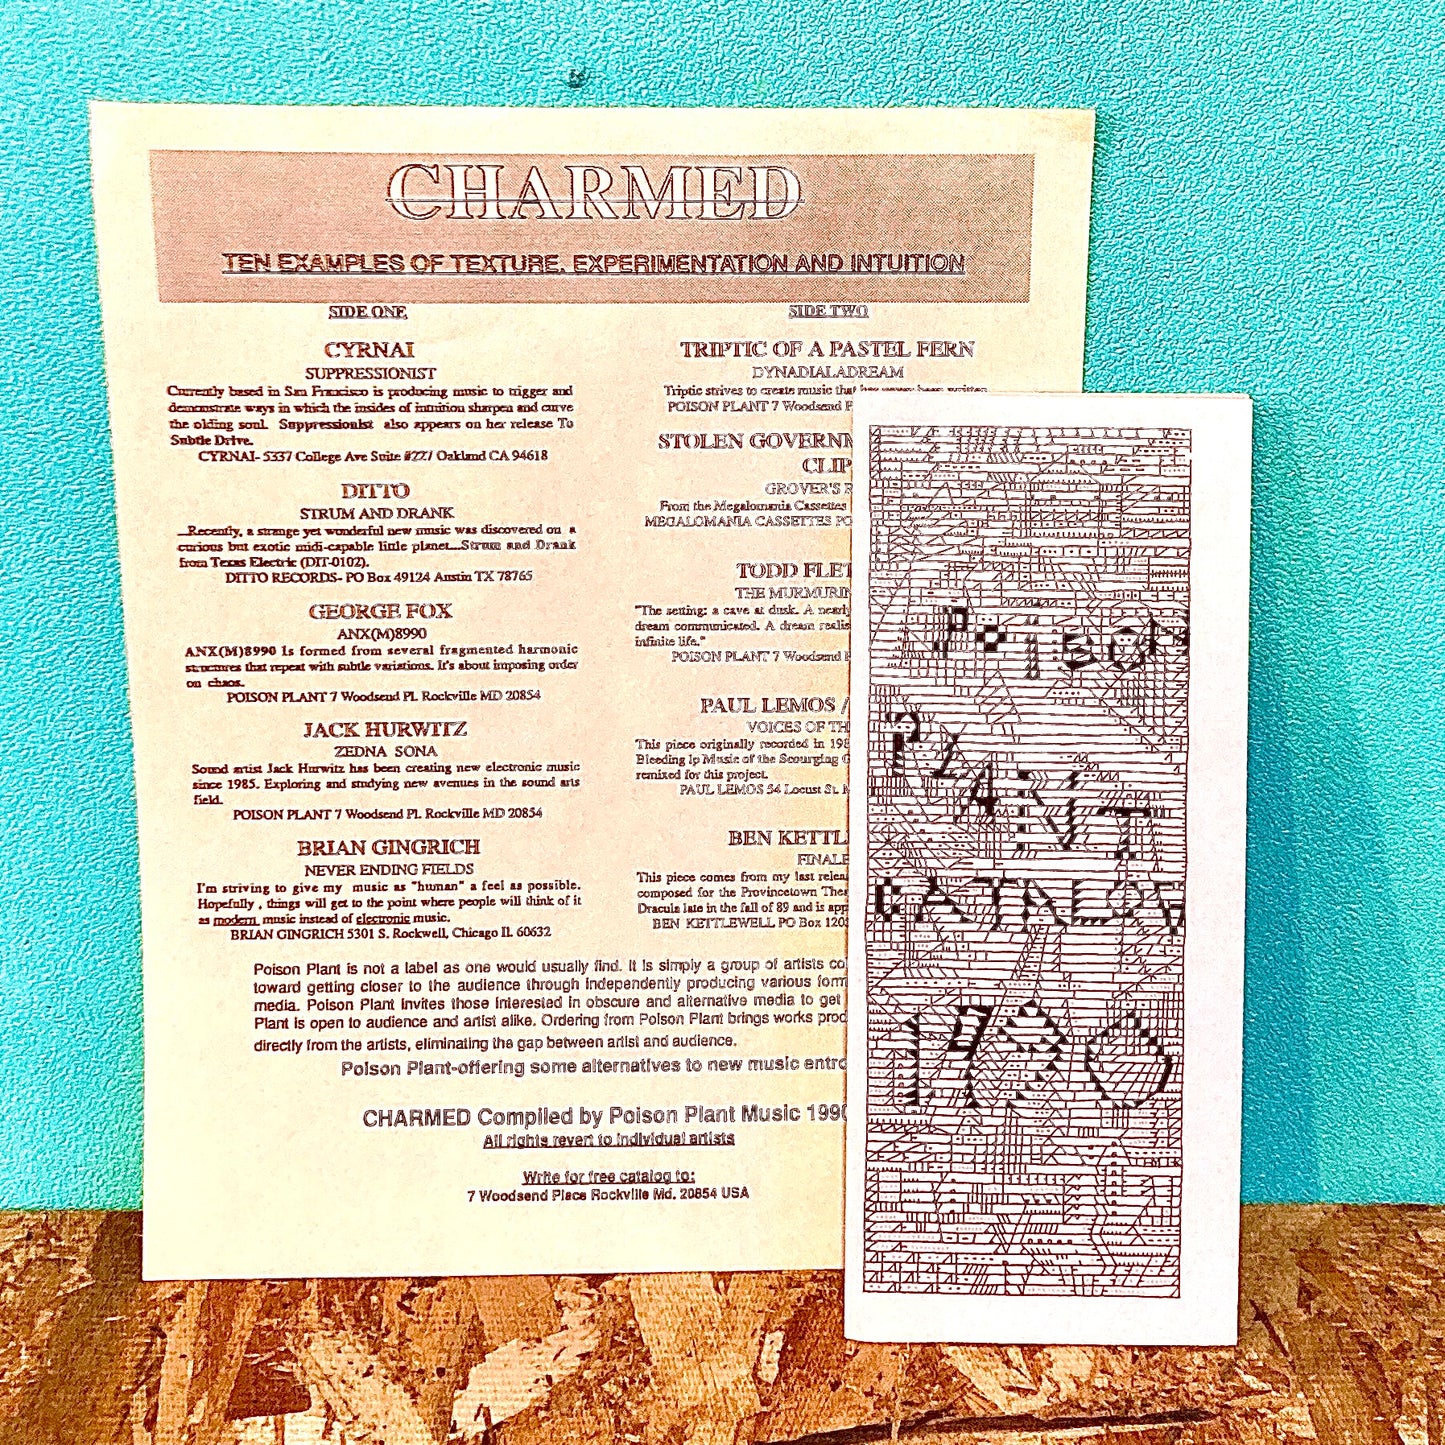 CHARMED
TEN EXAMPLES OF TEXTURE, EXPERIMENTATION AND INTUITION
SIDE ONE
CYRNAI
SUPPRESSIONIST
Currently based in San Francisco is producing music to trigger and
demonstrate ways in which the insides of intuition sharpen and curve
the olding soul. Suppressionist also appears on her release To
Subtle Drive.
CYRNAI- 5337 College Ave Suite #227 Oakland CA 94618
DITTO
STRUM AND DRANK
...Recently, a strange yet wonderful new music was discovered on a
curious but exotic midi-capable little planet...Strum and Drank
from Texas Electric (DIT-0102).
DITTO RECORDS- PO Box 49124 Austin TX 78765
GEORGE FOX
ANX(M)8990
ANX(M)8990 is formed from several fragmented harmonic
structures that repeat with subtle variations. It's about imposing order
on chaos.
POISON PLANT 7 Woodsend Pl. Rockville MD 20854
JACK HURWITZ
ZEDNA SONA
Sound artist Jack Hurwitz has been creating new electronic music
since 1985. Exploring and studying new avenues in the sound arts
field.
POISON PLANT 7 Woodsend Pl. Rockville MD 20854
BRIAN GINGRICH
NEVER ENDING FIELDS
I'm striving to give my music as "human" a feel as possible.
Hopefully , things will get to the point where people will think of it
as modern music instead of electronic music.
BRIAN GINGRICH 5301 S. Rockwell, Chicago IL 60632
SIDE TWO
TRIPTIC OF A PASTEL FERN
DYNADIALADREAM
Triptic strives to create music that has never been written
POISON PLANT 7 Woodsend
STOLEN GOVERNM
CLIP
GROVER'S
From the Megalomania Cassettes
MEGALOMANIA CASSETTES PO
TODD FLET
THE MURMURIN
"The setting: a cave at dusk. A nearly
dream communicated. A dream realis
infinite life."
POISON PLANT 7 Woodsend
PAUL LEMOS /
VOICES OF TH
This piece originally recorded in 198
Bleeding Ip Music of the Scourging
remixed for this project.
PAUL LEMOS 54 Locust St.
BEN KETTLE
FINALE
This piece comes from my last relea
composed for the Provincetown Thea
Dracula late in the fall of 89 and is app
BEN KETTLEWELL PO Box 120
Poison Plant is not a label as one would usually find. It is simply a group of artists co
toward getting closer to the audience through independently producing various form
media. Poison Plant invites those interested in obscure and alternative media to get
Plant is open to audience and artist alike. Ordering from Poison Plant brings works prod
directly from the artists, eliminating the gap between artist and audience.
Poison Plant-offering some alternatives to new music entro
CHARMED Compiled by Poison Plant Music 1990
All rights revert to individual artists
Write for free catalog to:
7 Woodsend Place Rockville Md. 20854 USA
POISON
PLANT
CATALOG
1990